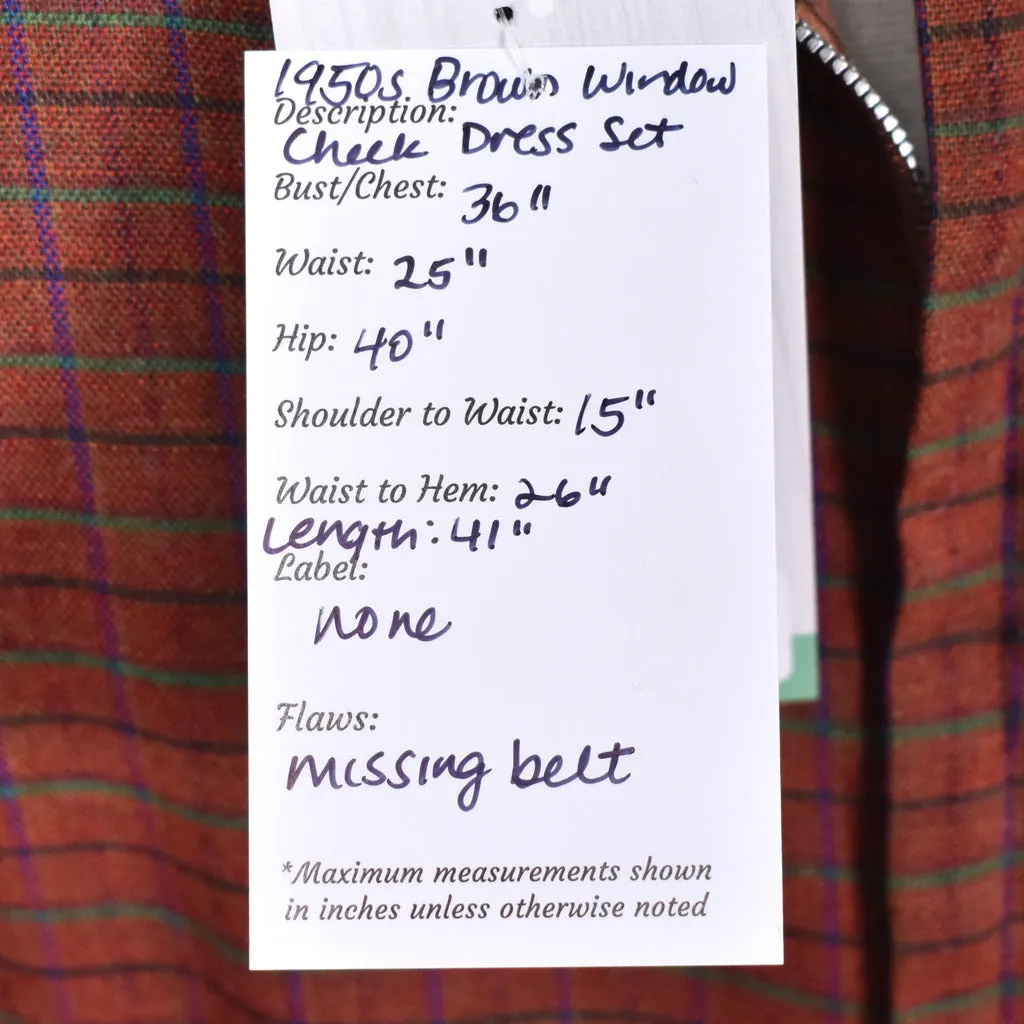 1950s Brown Window
Description:
Check Dress Set
Bust/Chest: 36"
Waist: 25"
Hip: 40"
Shoulder to Waist: 15"
Waist to Hem: 26"
Length: 41"
Label:
none
Flaws:
missing belt
*Maximum measurements shown
in inches unless otherwise noted